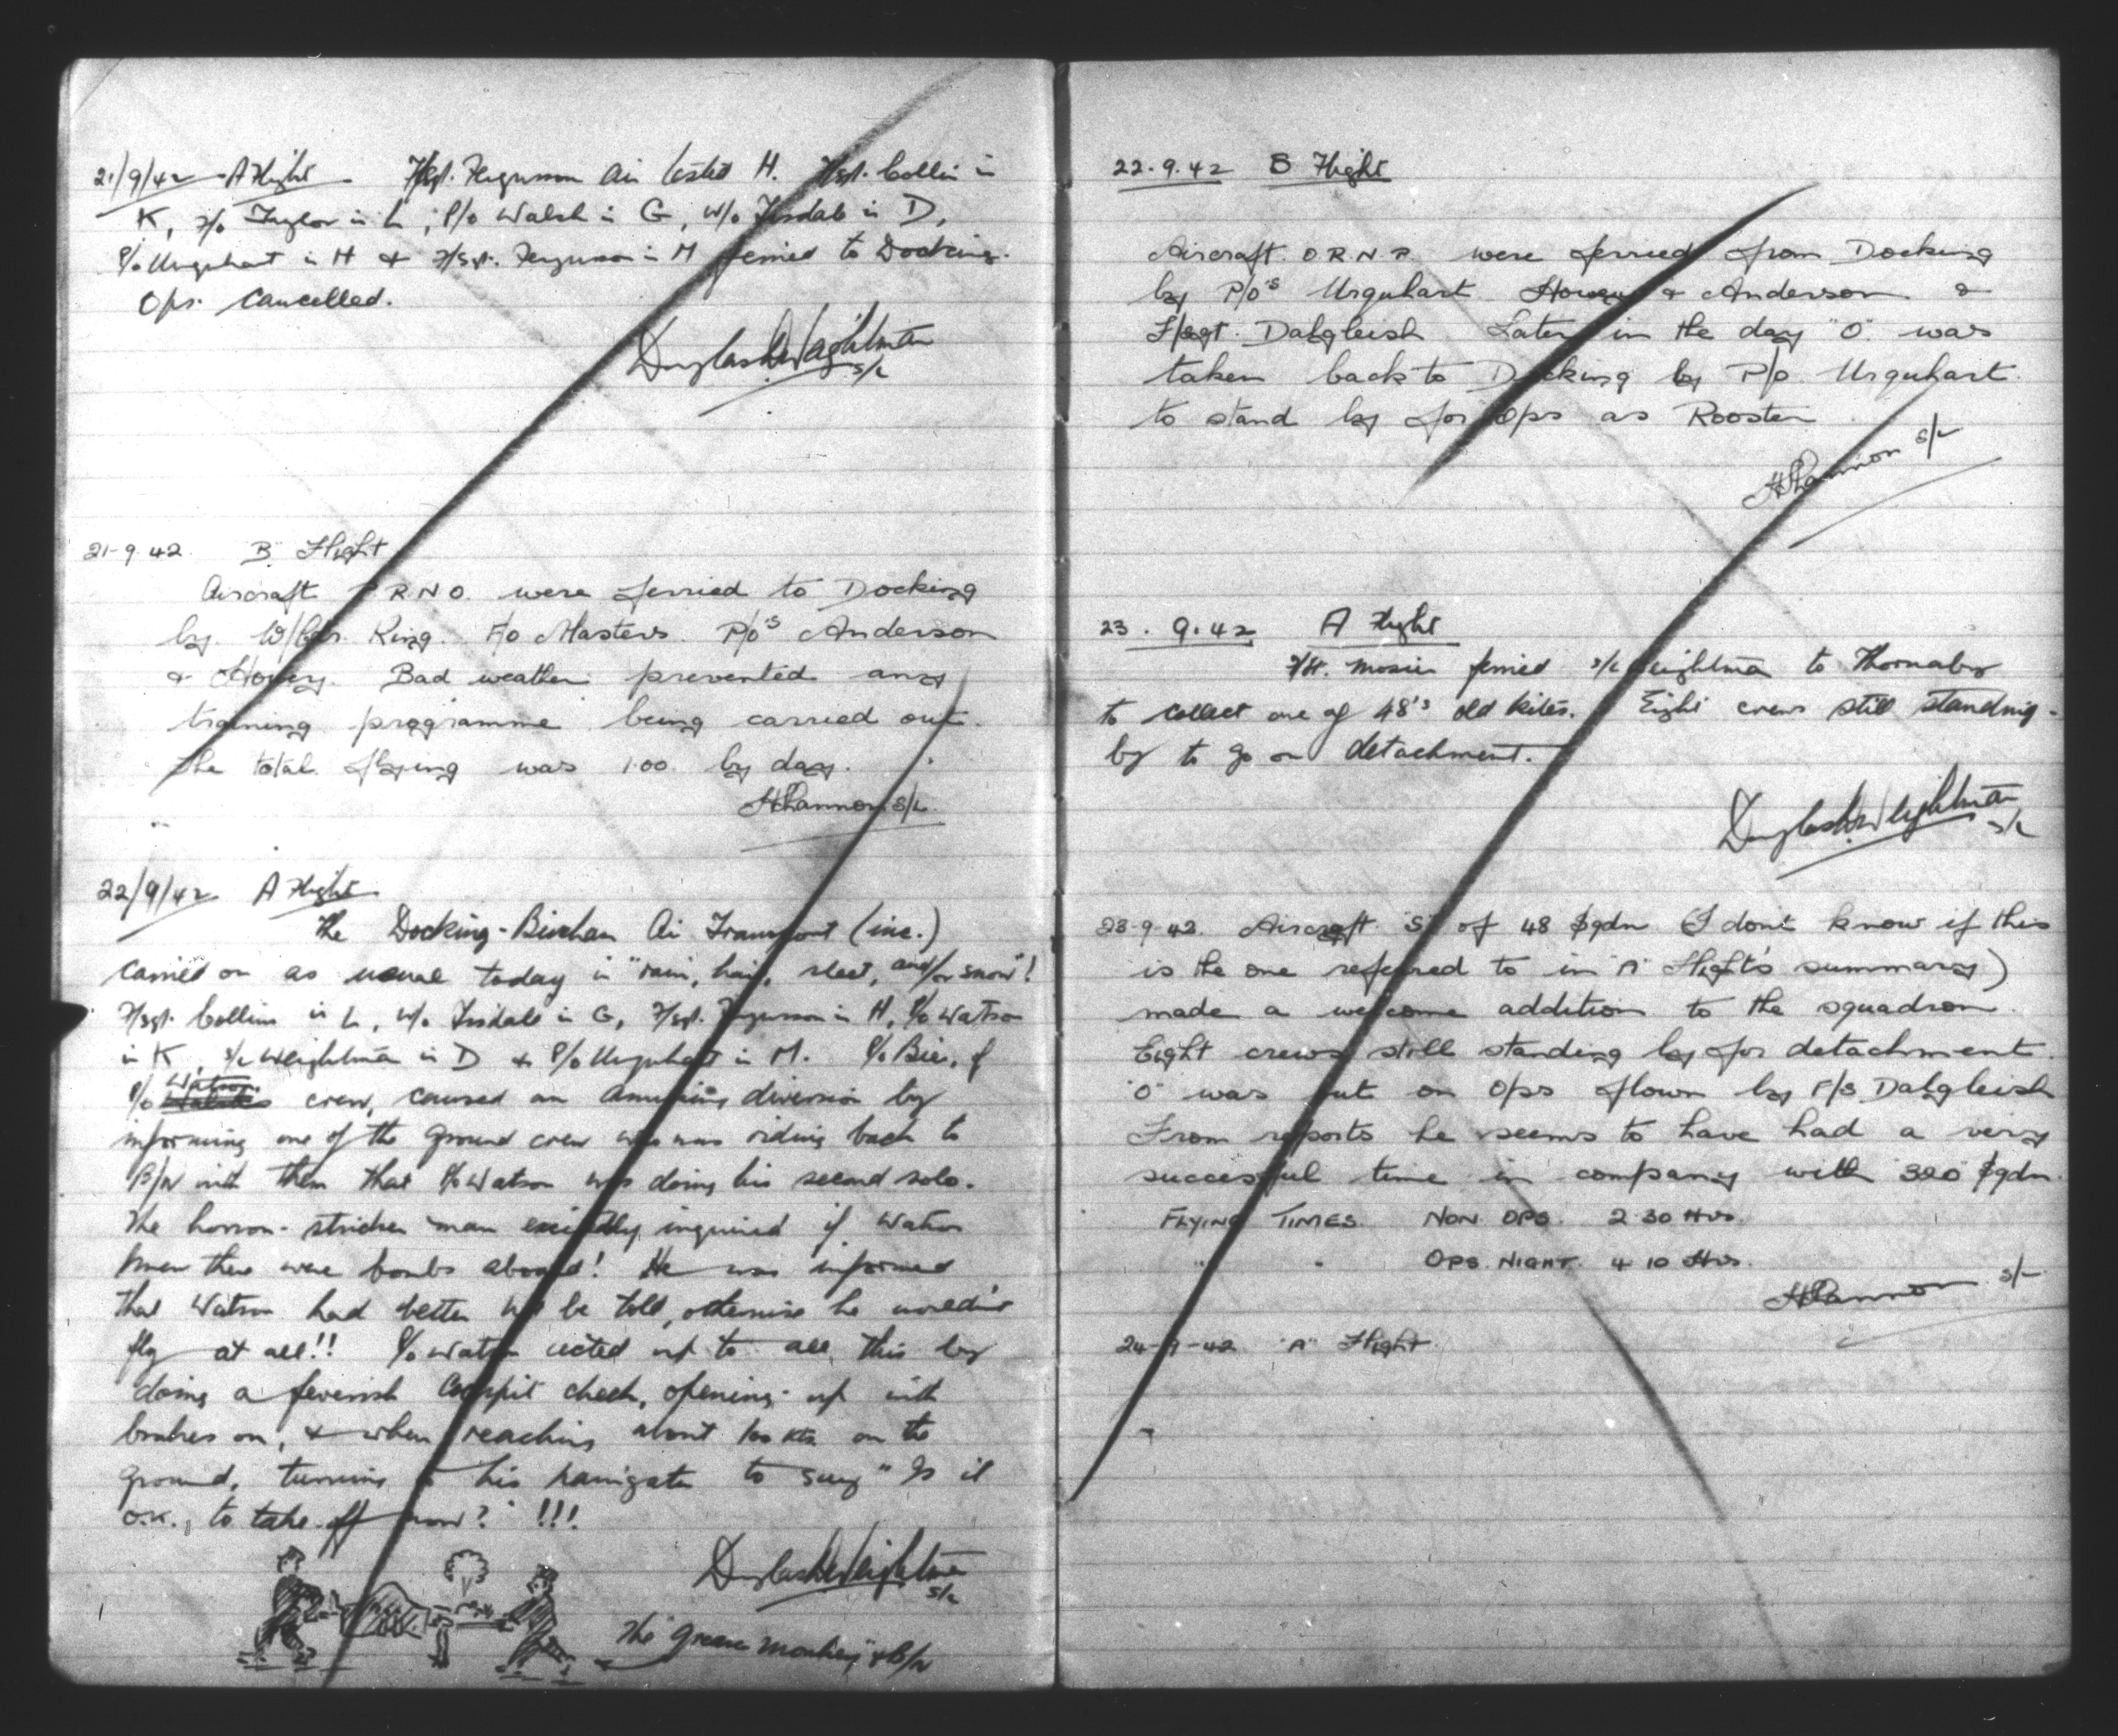 21/9/42 A Flight F/Sgt. Ferguson Air tested H. F/Sgt. Collin in
K, F/O Taylor in L, P/O Walsh in G, W/O Tisdale in D,
P/O Urquhart in H & F/Sgt. Ferguson in M ferried to Docking.
Ops. Cancelled.
Douglas Weightman
S/L
21-9-42 "B" Flight
Aircraft P.R.N.O. were ferried to Docking
by W/Cdr. King. F/O Masters. P/O's Anderson
& Hovey. Bad weather prevented any
training programme being carried out.
The total flying was 1.00 by day.
HShannon S/L.
22/9/42 A Flight
The Docking-Bircham Air Transport (inc.)
carried on as usual today in "rain, hail, sleet, and/or snow"!
F/Sgt. Collin in L, W/O Tisdale in G, F/Sgt. Ferguson in H, P/O Watson
in K, S/L Weightman in D & P/O Urquhart in M. P/O Bie, of
P/O Watson's crew, caused an amusing diversion by
informing one of the ground crew who was riding back to
B/N with them that P/O Watson was doing his second solo.
The horror-stricken man excitedly inquired if Watson
knew there were bombs aboard! He was informed
that Watson had better not be told, otherwise he wouldn't
fly at all!! P/O Watson acted up to all this by
doing a feverish Cockpit check, opening up with
brakes on, & when reaching about 100 kts on the
ground, turning to his navigator to say "Is it
O.K., to take off now?" !!!
Douglas Weightman
S/L
The "grease monkey" & B/N
22.9.42 B Flight
Aircraft. O.R.N.P. were ferried from Docking
by P/O's Urquhart Hovey & Anderson &
F/Sgt. Dalgleish Later in the day "O" was
taken back to Docking by P/O. Urquhart
to stand by for Ops as Rooster
HShannon S/L
23.9.42 A Flight
F/Lt. Mosier ferried S/L Weightman to Thornaby
to collect one of 48's old kites. Eight crews still standing-
by to go on detachment.
Douglas Weightman
S/L
23-9-42. Aircraft "S" of 48 Sqdn (I don't know if this
is the one referred to in "A" Flight's summary)
made a welcome addition to the squadron.
Eight crews still standing by for detachment.
"O" was put on Ops flown by F/S Dalgleish
From reports he seems to have had a very
successful time in company with 320 Sqdn.
FLYING TIMES. NON OPS. 2.30 Hrs.
" " OPS. NIGHT. 4.10 Hrs.
HShannon S/L
24-9-42 "A" Flight.